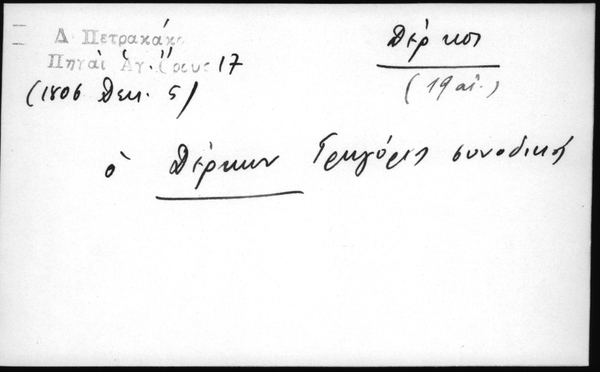 Δ. Πετρακάκο
Πηγαὶ Ἁγ. Ὄρους 17
(1806 Δεκ. 5)
Δέρκοι
(19 αἰ.)
ὁ Δέρκων Γρηγόριος συνοδικός